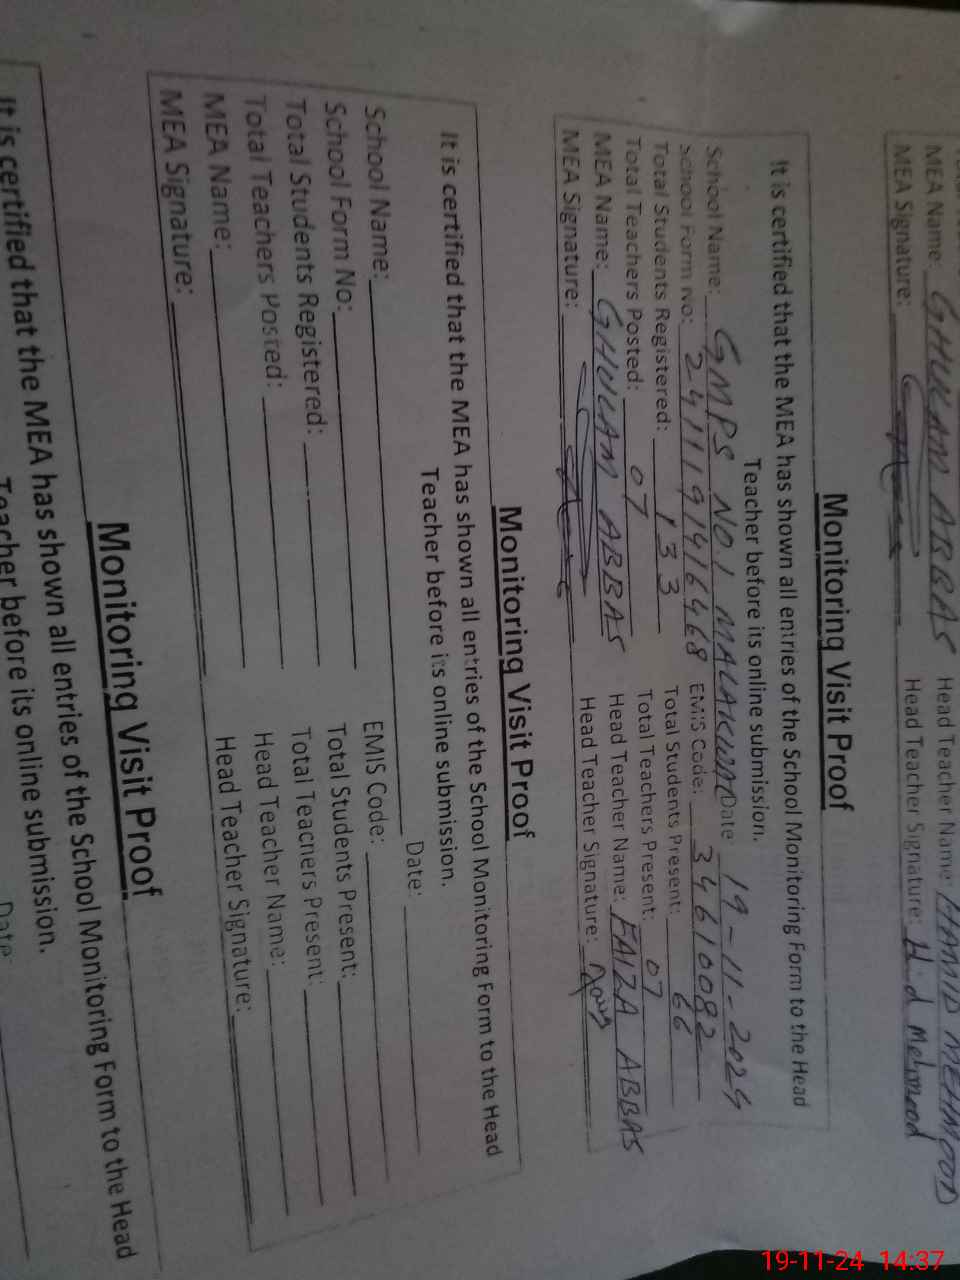 MEA Name: GHULAM ABBAS Head Teacher Name: HAMID MEHMOOD
MEA Signature: Head Teacher Signature: Mehmood
Monitoring Visit Proof
It is certified that the MEA has shown all entries of the School Monitoring Form to the Head
Teacher before its online submission.
School Name: GMPS NO.1 MALAKWAL Date 19-11-2024
School Form No: 2411191416468 EMIS Code: 34610082
Total Students Registered: 133 Total Students Present: 66
Total Teachers Posted: 07 Total Teachers Present: 07
MEA Name: GHULAM ABBAS Head Teacher Name: FAIZA ABBAS
MEA Signature: Head Teacher Signature:
Monitoring Visit Proof
It is certified that the MEA has shown all entries of the School Monitoring Form to the Head
Teacher before its online submission.
School Name: Date:
School Form No: EMIS Code:
Total Students Registered: Total Students Present:
Total Teachers Posted: Total Teachers Present:
MEA Name: Head Teacher Name:
MEA Signature: Head Teacher Signature:
Monitoring Visit Proof
It is certified that the MEA has shown all entries of the School Monitoring Form to the Head
Teacher before its online submission.
Date:
19-11-24 14:37